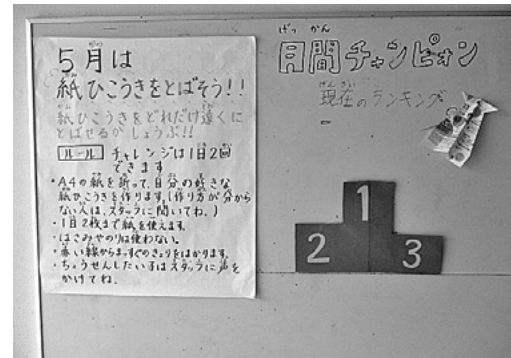 5月は
紙ひこうきをとばそう!!
紙ひこうきをどれだけ遠くに
とばせるかしょうぶ!!
ルール チャレンジは1日2回
できます
・A4の紙を折って、自分の好きな
紙ひこうきを作ります。(作り方が分から
ない人は、スタッフに聞いてね。)
・1日2枚まで紙を使えます。
・はさみやのりは使わない。
・赤い線からまっすぐのきょりをはかります。
・ちょうせんしたい子はスタッフに声を
かけてね。
げっかん
月間チャンピオン
げんざい
現在のランキング
1
2
3